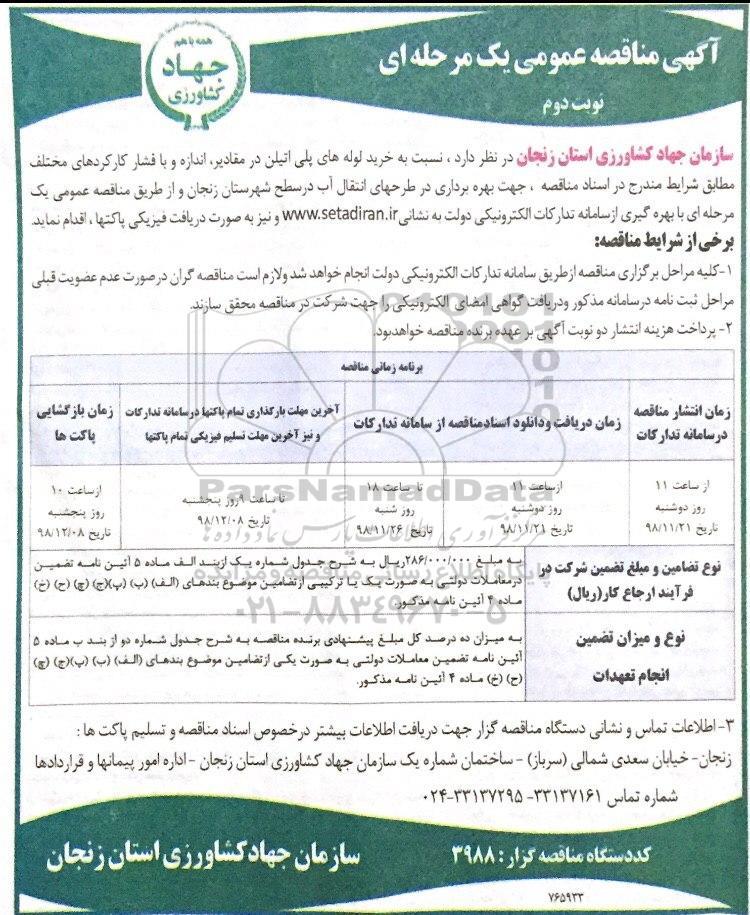 آگهی مناقصه عمومی یک مرحله ای
نوبت دوم
همه با هم
جهاد
کشاورزی
سازمان جهاد کشاورزی استان زنجان در نظر دارد ، نسبت به خرید لوله های پلی اتیلن در مقادیر، اندازه و با فشار کارکردهای مختلف
مطابق شرایط مندرج در اسناد مناقصه ، جهت بهره برداری در طرحهای انتقال آب درسطح شهرستان زنجان و از طریق مناقصه عمومی یک
مرحله ای با بهره گیری ازسامانه تدارکات الکترونیکی دولت به نشانی www.setadiran.ir و نیز به صورت دریافت فیزیکی پاکتها ، اقدام نماید.
برخی از شرایط مناقصه:
۱-کلیه مراحل برگزاری مناقصه ازطریق سامانه تدارکات الکترونیکی دولت انجام خواهد شد ولازم است مناقصه گران درصورت عدم عضویت قبلی
مراحل ثبت نامه درسامانه مذکور ودریافت گواهی امضای الکترونیکی را جهت شرکت در مناقصه محقق سازند.
۲- پرداخت هزینه انتشار دو نوبت آگهی بر عهده برنده مناقصه خواهدبود.
برنامه زمانی مناقصه
زمان انتشار مناقصه درسامانه تدارکات
زمان دریافت ودانلود اسنادمناقصه از سامانه تدارکات
آخرین مهلت بارگذاری تمام پاکتها درسامانه تدارکات
و نیز آخرین مهلت تسلیم فیزیکی تمام پاکتها
زمان بازگشایی
پاکت ها
از ساعت ۱۱
روز دوشنبه
تاریخ ۹۸/۱۱/۲۱
ازساعت ۱۱
روز دوشنبه
تاریخ ۹۸/۱۱/۲۱
تا ساعت ۱۸
روز شنبه
تاریخ ۹۸/۱۱/۲۶
تا ساعت ۹روز پنجشنبه
تاریخ ۹۸/۱۲/۰۸
ازساعت ۱۰
روز پنجشنبه
تاریخ ۹۸/۱۲/۰۸
ParsNamadData
مرکز فرآوری اطلاعات پارس نماد داده ها
پایگاه اطلاع رسانی مناقصه و مزایده
۰۲۱-۸۸۳۴۹۶۷۰-۵
نوع تضامین و مبلغ تضمین شرکت در
فرآیند ارجاع کار(ریال)
به مبلغ ۲۸۶/۰۰۰/۰۰۰ریال به شرح جدول شماره یک ازبند الف ماده ۵ آئین نامه تضمین
درمعاملات دولتی به صورت یک یا ترکیبی ازتضامین موضوع بندهای (الف) (ب) (پ)(ج) (چ) (ح) (خ)
ماده ۴ آئین نامه مذکور
نوع و میزان تضمین
انجام تعهدات
به میزان ده درصد کل مبلغ پیشنهادی برنده مناقصه به شرح جدول شماره دو از بند ب ماده ۵
آئین نامه تضمین معاملات دولتی به صورت یکی ازتضامین موضوع بندهای (الف) (ب) (پ)(ج) (چ)
(ح) (خ) ماده ۴ آئین نامه مذکور.
۳- اطلاعات تماس و نشانی دستگاه مناقصه گزار جهت دریافت اطلاعات بیشتر درخصوص اسناد مناقصه و تسلیم پاکت ها :
زنجان- خیابان سعدی شمالی (سرباز) - ساختمان شماره یک سازمان جهاد کشاورزی استان زنجان - اداره امور پیمانها و قراردادها
شماره تماس ۳۳۱۳۷۱۶۱- ۳۳۱۳۷۲۹۵-۰۲۴
کددستگاه مناقصه گزار : ۳۹۸۸
سازمان جهاد کشاورزی استان زنجان
۷۶۵۹۳۳